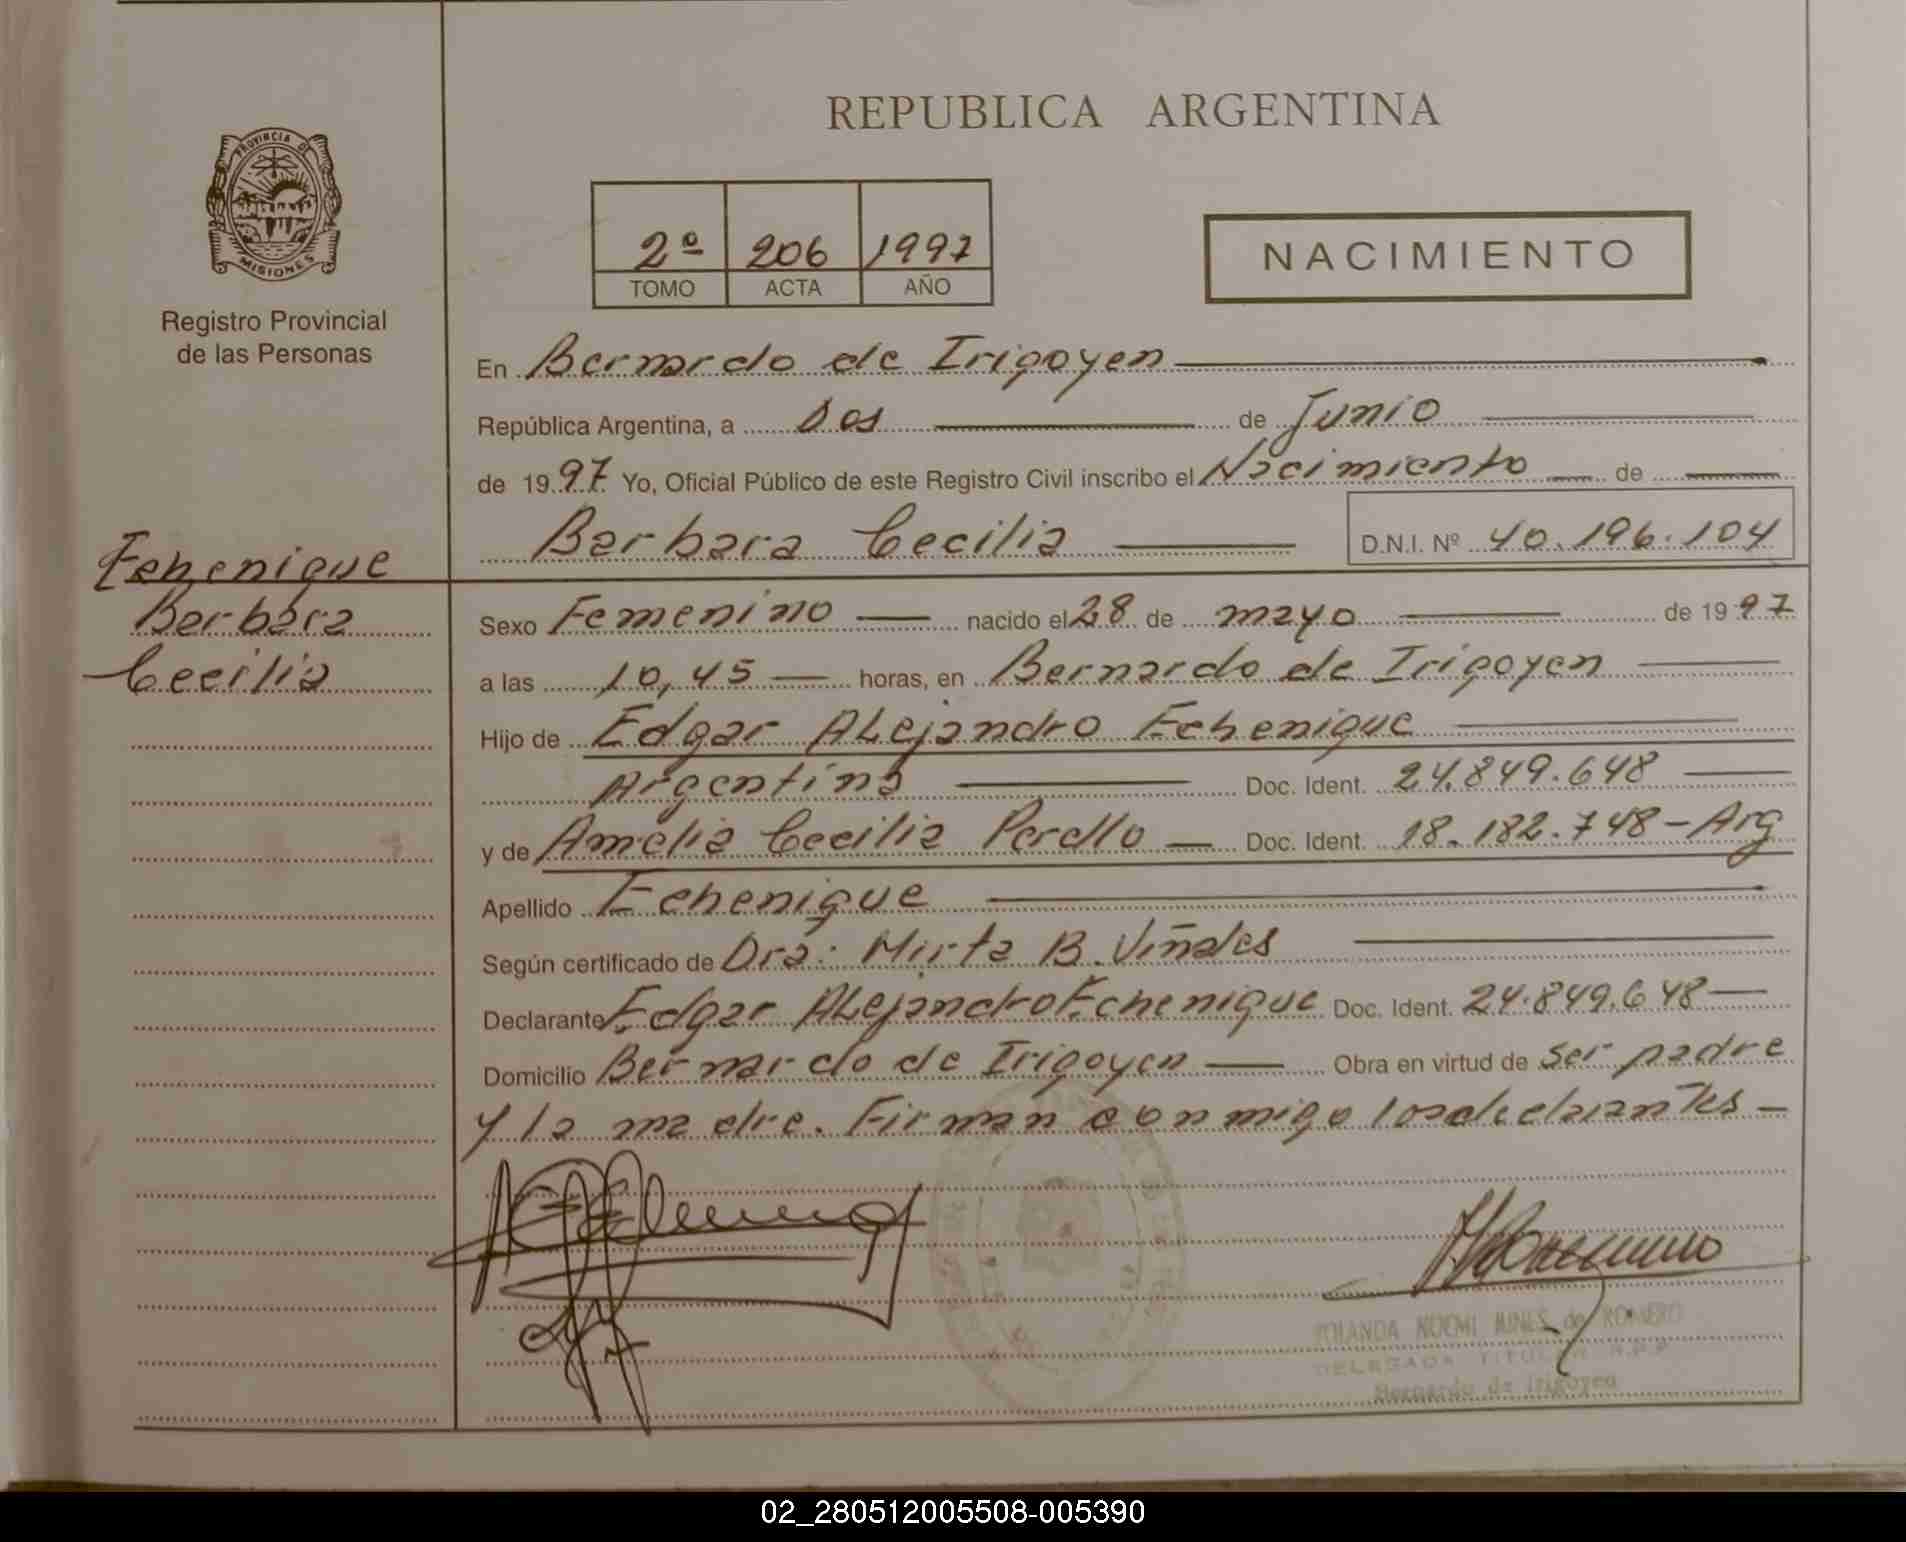 REPUBLICA ARGENTINA
PROVINCIA DE
MISIONES
Registro Provincial
de las Personas
2º 206 1997
TOMO ACTA AÑO
NACIMIENTO
En Bernardo de Irigoyen
República Argentina, a Dos de Junio
de 1997 Yo, Oficial Público de este Registro Civil inscribo el Nacimiento de
Barbara Cecilia D.N.I. Nº 40.196.104
Echenique
Barbara
Cecilia
Sexo Femenino nacido el 28 de mayo de 1997
a las 10,45 horas, en Bernardo de Irigoyen
Hijo de Edgar Alejandro Echenique
Argentina Doc. Ident. 24.849.648
y de Amelia Cecilia Perdlo Doc. Ident. 18.182.748 - Arg
Apellido Echenique
Según certificado de Dra: Mirta B. Viñales
Declarante Edgar Alejandro Echenique Doc. Ident. 24.849.648
Domicilio Bernardo de Irigoyen Obra en virtud de ser padre
y la madre. Firman conmigo los declarantes -
YOLANDA NOEMI de ROMERO
DELEGADA TITULAR R.P.P.
Bernardo de Irigoyen
02_280512005508-005390